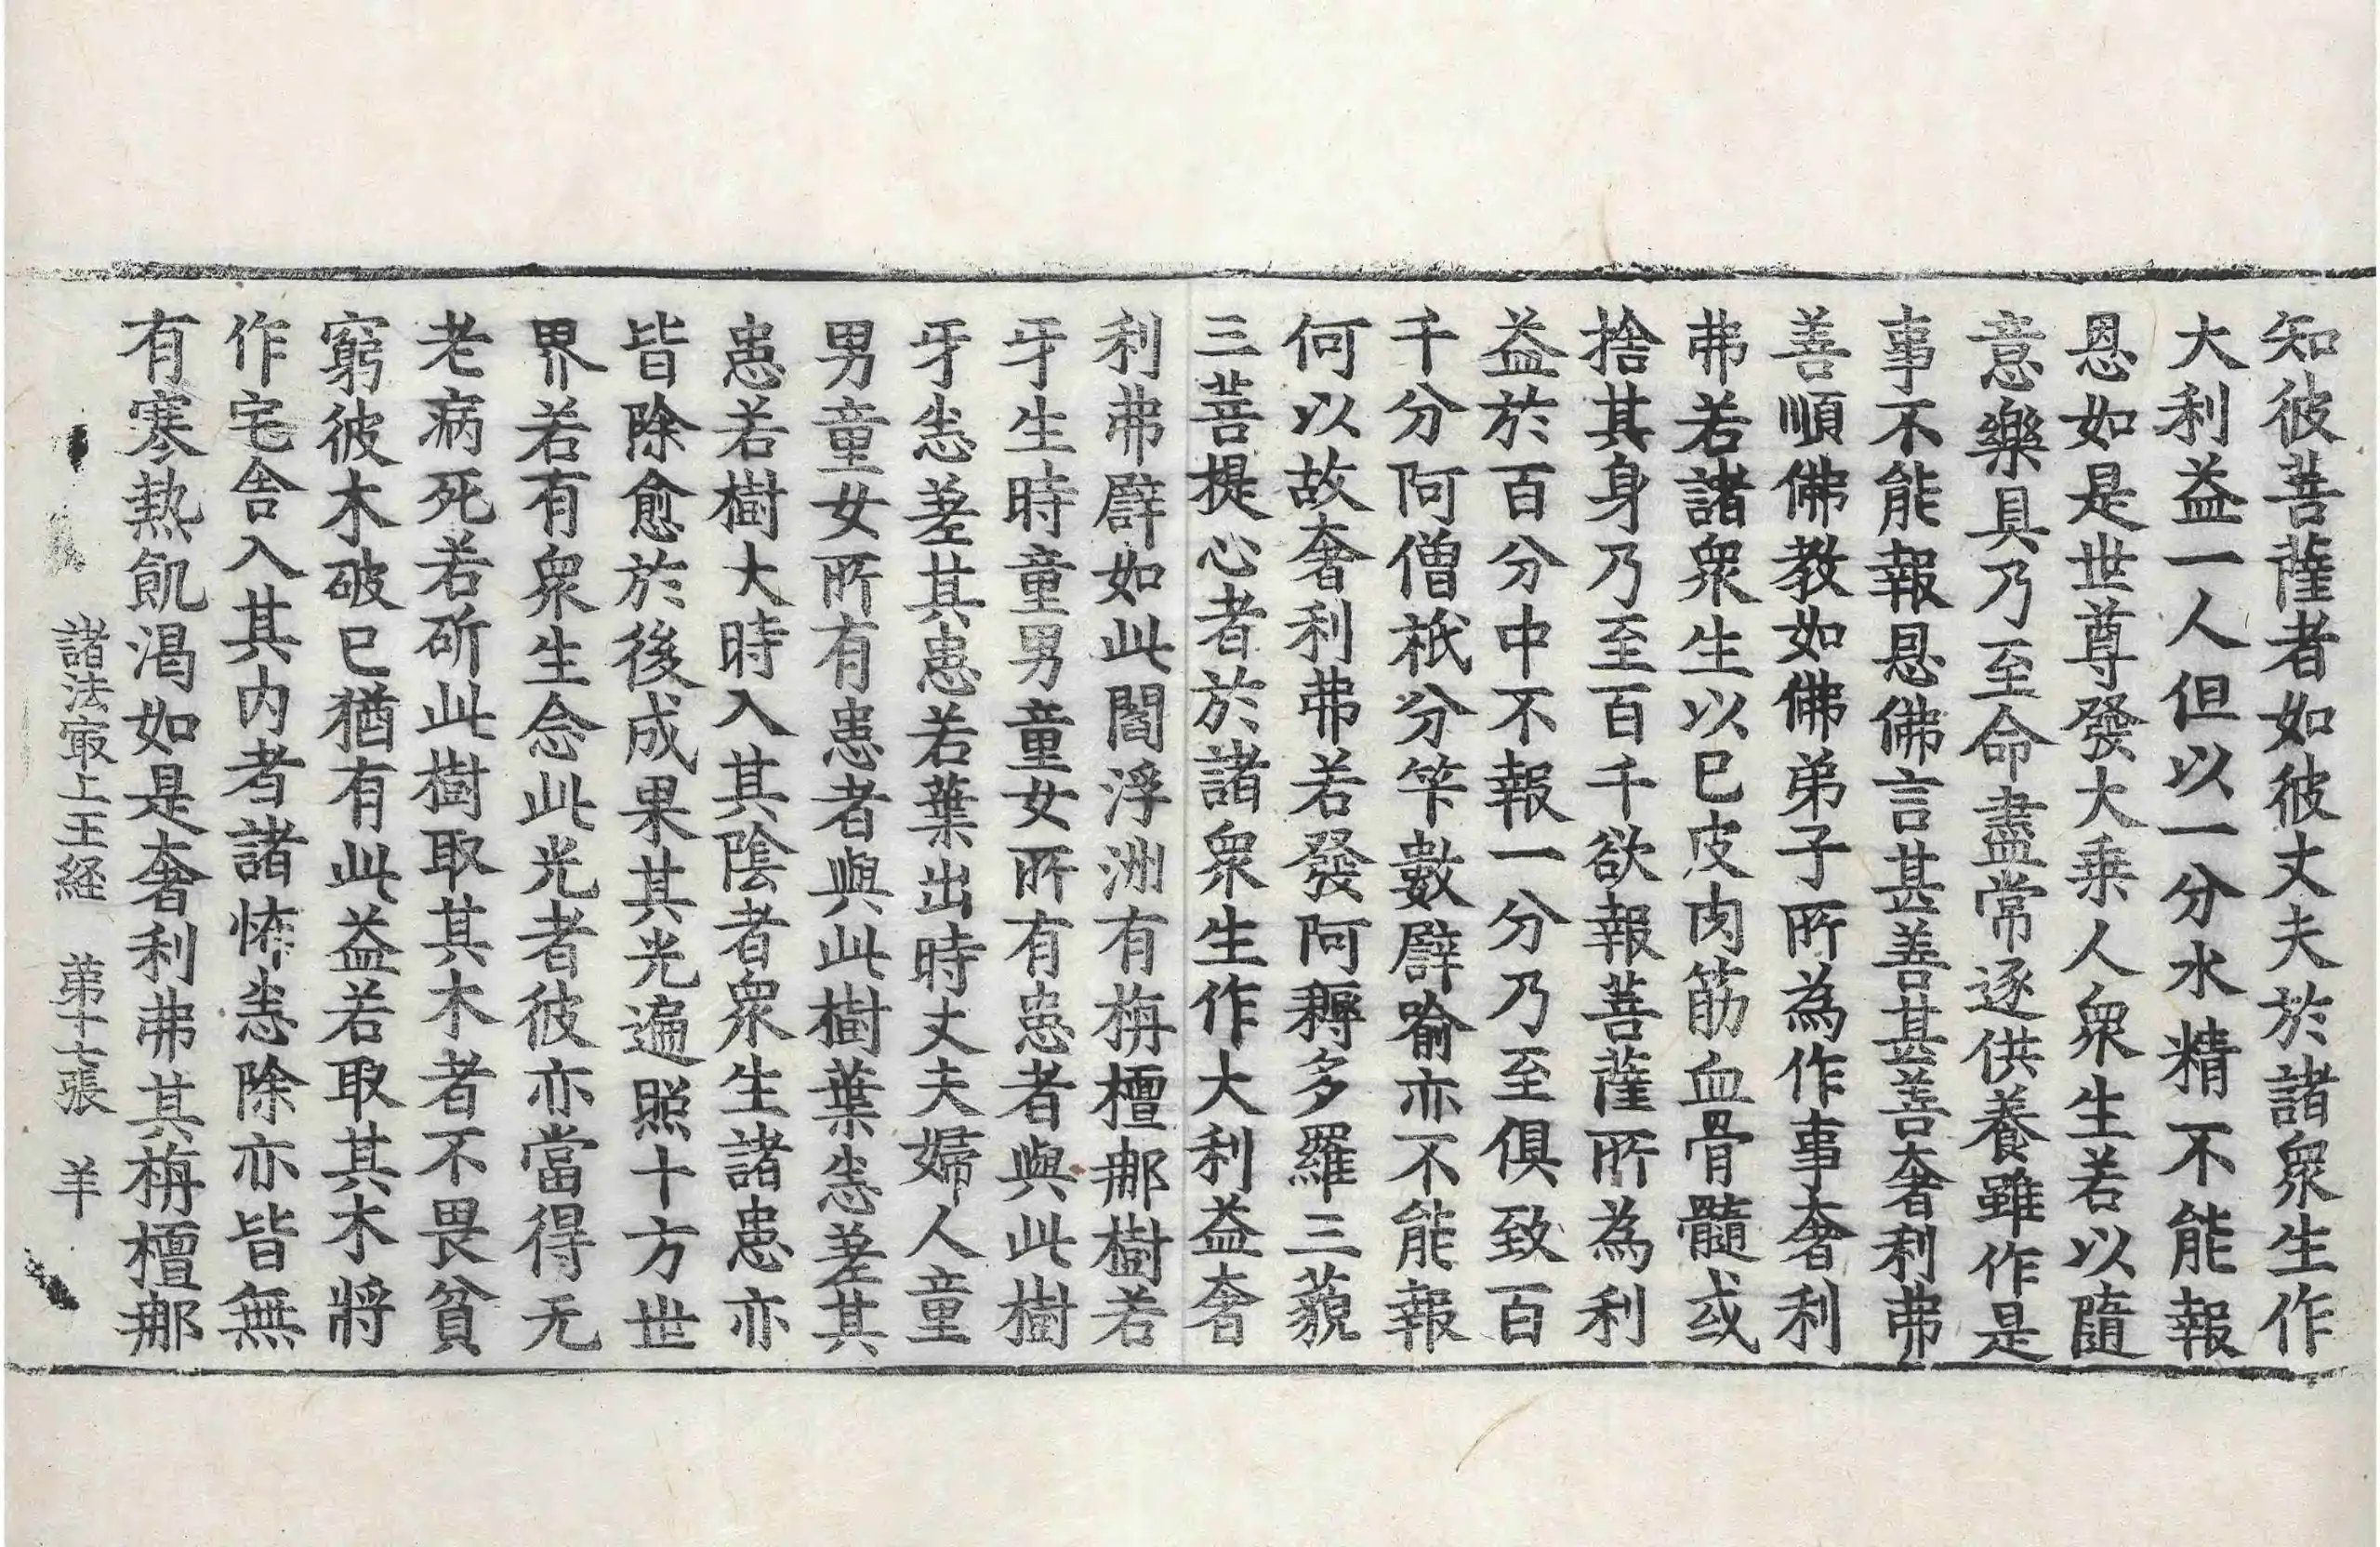 知彼菩薩者如彼丈夫於諸衆生作
大利益一人但以一分水精不能報
恩如是世尊發大乗人衆生若以隨
意樂具乃至命盡常逐供養雖作是
事不能報恩佛言甚善甚善奢利弗
善順佛教如佛弟子所為作事奢利
弗若諸衆生以已皮肉筋血骨髓或
捨其身乃至百千欲報菩薩所為利
益於百分中不報一分乃至俱致百
千分阿僧祇分笇數譬喻亦不能報
何以故奢利弗若發阿耨多羅三藐
三菩提心者於諸衆生作大利益奢
利弗譬如此閻浮洲有栴檀那樹若
牙生時童男童女所有患者與此樹
牙恙差其患若葉出時丈夫婦人童
男童女所有患者與此樹葉恙差其
患若樹大時入其陰者衆生諸患亦
皆除愈於後成果其光遍照十方世
界若有衆生念此光者彼亦當得无
老病死若斫此樹取其木者不畏貧
窮彼木破已猶有此益若取其木將
作宅舍入其内者諸怖恙除亦皆無
有寒熱飢渴如是奢利弗其栴檀那
諸法㝡上王経　第十七張　羊